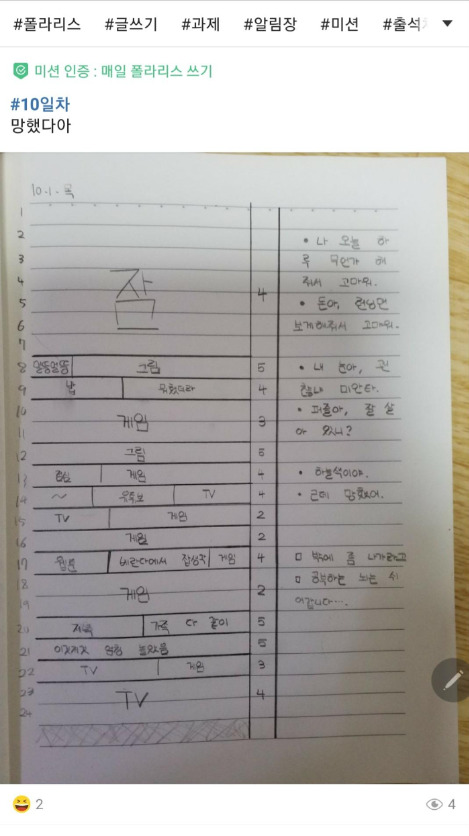 #폴라리스 #글쓰기 #과제 #알림장 #미션 #출석
미션 인증 : 매일 폴라리스 쓰기
#10일차
망했다아
10.1.목
1
2
3
4
5
6
7
잠
4
8 그림 5
9 밥 4
10
11
게임 3
12 그림 5
13 게임 4
14 ~ 유튜브 TV 4
15 TV 게임 2
16 게임 2
17 웹툰 베란다에서 게임 4
18
19
게임 2
20 저녁 가족 다 같이 5
21 이것저것 5
22 TV 게임 3
23
24
TV 4
• 나 오늘 하
루 무언가 해
줘서 고마워.
• 돈아,
보게해줘서 고마워.
• 내
미안타.
• 잘 살
아 있니?
• 하늘색이야.
• 근데 망했어.
□ 밖에 좀 나가라고
□ 공부하는 뇌는 쉬
어갑니다....
2
4